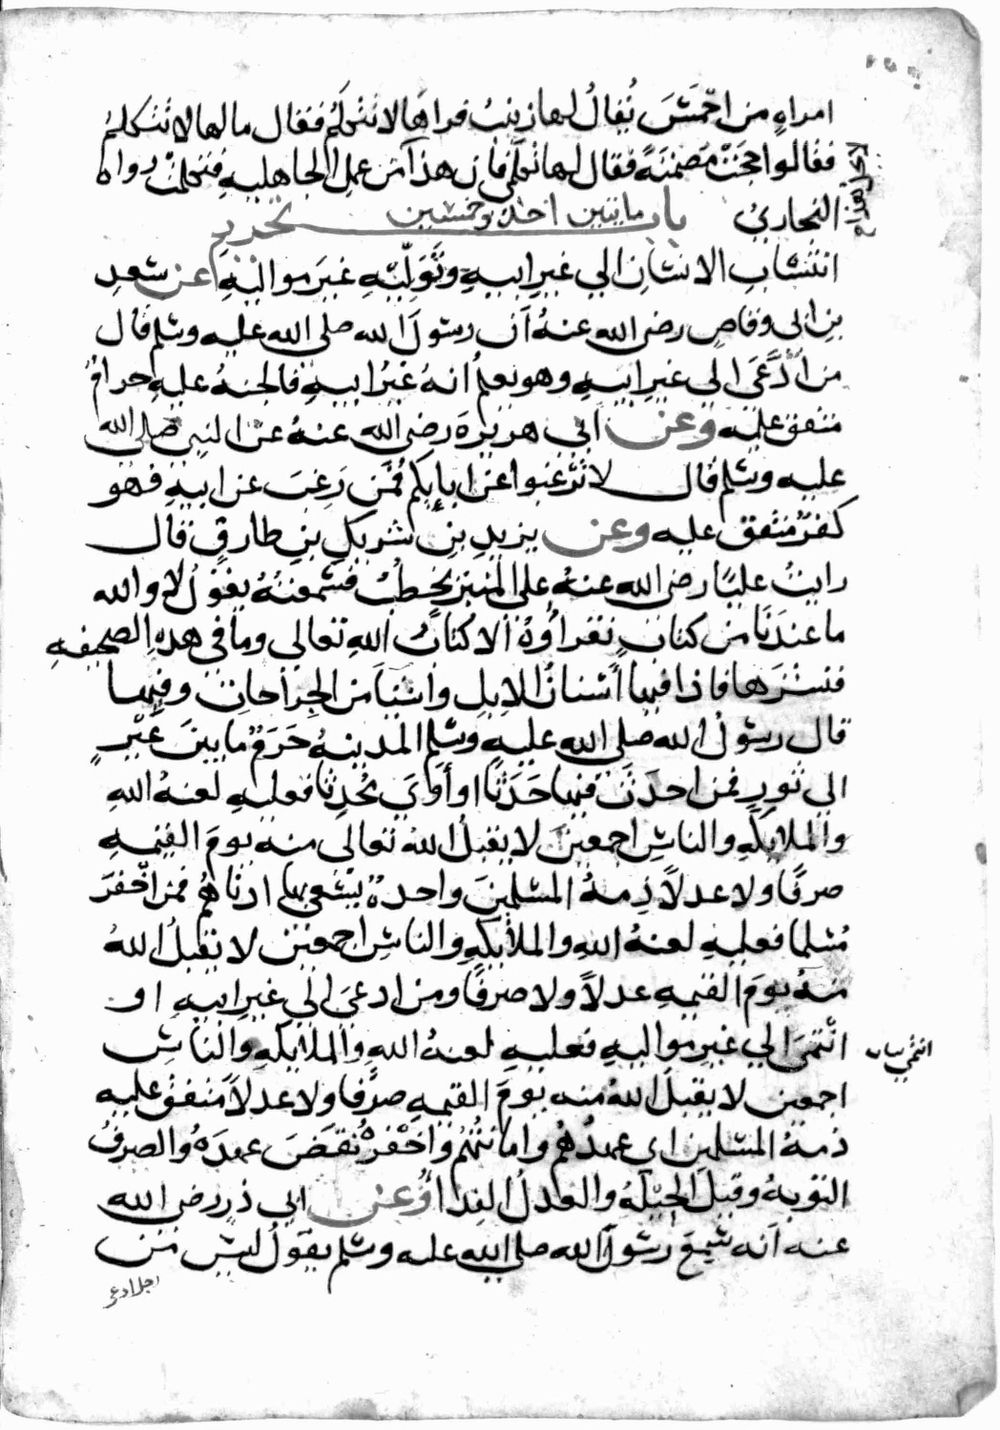 امراهٍ من احْمَسَ يُقالُ لها زينبُ فراها لا تتكلمُ فقال ما لها لا تتكلمُ
فقالوا حجَتْ مصمتةً فقال لها تكلمي فان هذا من عملِ الجاهليهِ فتكلمتْ رواه
البخاري باب مايتين احد وخمسين تحريم
انتسابِ الانسانِ الي غيرِ ابيهِ وتَوَلِّيْهِ غيرَ مواليْهِ عن سعدِ
بنِ ابى وقاصٍ رضى الله عنهُ أن رسولَ الله صلى الله عليه وسلم قال
من ادَّعَى الى غيرِ ابيهِ وهو يعلمُ انهُ غيرُ ابيهِ فالجنهُ عليهِ حرامٌ
متفق عليْه وعن ابي هريْرةَ رضى الله عنهُ عن النبى صلى الله
عليه وسلم قال لا ترْغبوا عن ابايكم فمن رَغِبَ عن ابيهِ فهو
كفرٌ متفق عليه وعن يزيدِ بنِ شريكِ بنِ طارقٍ قال
رايتُ عليًا رضى الله عنهُ على المنبرِ يخطبُ فسمعْتهُ يقولُ لا والله
ما عندنَا من كتابٍ نقراُوهُ الا كتابُ اللهِ تعالي وما في هذهِ الصحيفهِ
فنشرَها فاذا فيها أسنانُ الابلِ واشيآ من الجِراحاتِ وفيها
قال رسولُ الله صلى الله عليهِ وسلم المدينهُ حَرَمٌ ما بينَ عَيْرٍ
الي ثورٍ فمن احدَثَ فيها حَدَثًا او أوَي مُحْدِثا فعليهِ لعنهُ اللهِ
والملايكهِ والناسِ اجمعينَ لا يقبلُ اللهُ تعالى منه يومَ القيمهِ
صرفًا ولا عدلاً ذِمهُ المسلمينَ واحدهٌ يسعي بها ادناهُم فمن اخْفرَ
مُسْلما فعليهِ لعنهُ اللهِ والملايكهِ والناسِ اجمعين لا يقبلُ اللهُ
منهُ يومَ القيمهِ عدلاً ولا صرفًا ومن ادعىَ الي غيرِ ابيهِ او
انْتمىَ الي غيرِ مواليهِ فعليهِ لعنهُ اللهِ والملايكهِ والناسِ
انتمي بيان
اجمعين لا يقبلُ اللهُ منه يومَ القيمهِ صرْفا ولا عدلاً متفقٌ عليهِ
ذمهُ المسلمين اى عهدُهُمْ وامانتُهُمُ واخْفرهُ نقضَ عهدَهُ والصرفُ
التوبهُ وقيلَ الحِيْلهُ والعدلُ الفِدآ وعن ابي ذرٍ رضى الله
عنه انه سَمِعَ رسُولَ الله صلى الله عليه وسلم يقولُ ليْسَ من
رجل ادعى